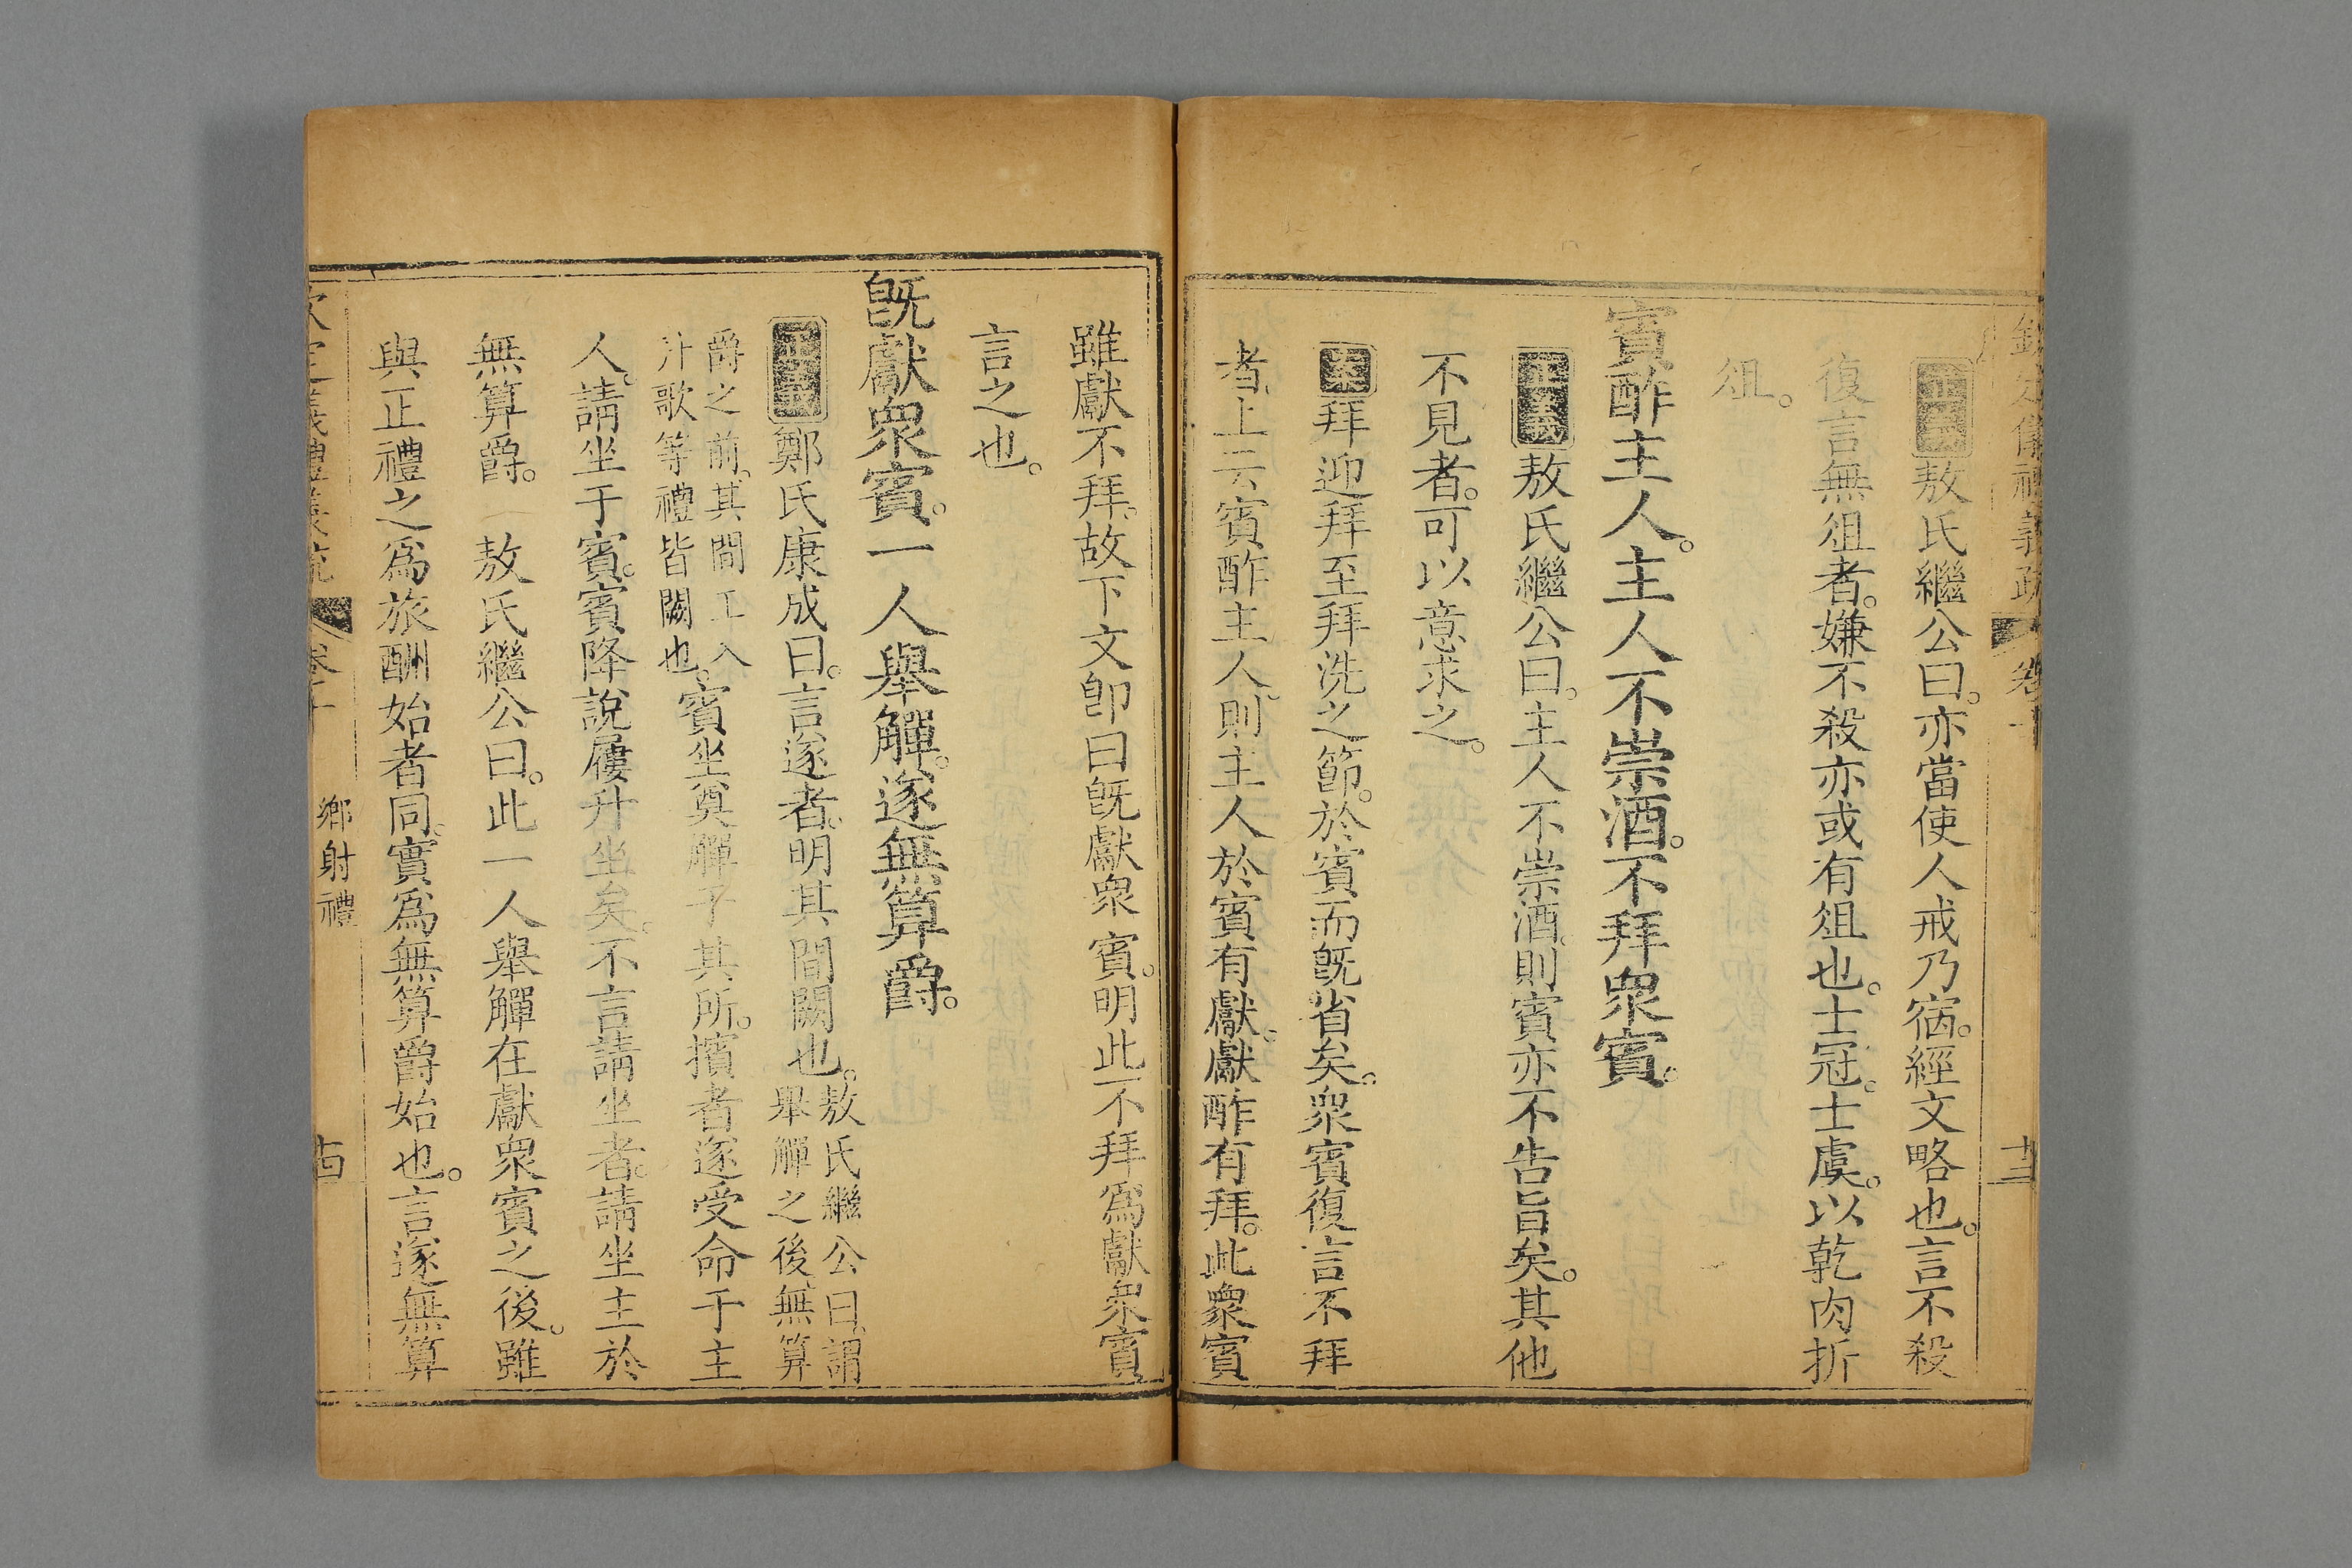 欽定儀禮義疏 卷十 十三
正義敖氏繼公曰。亦當使人戒乃宿。經文略也。言不殺
復言無俎者。嫌不殺亦或有俎也。士冠。士虞。以乾肉折
俎。
賓酢主人。主人不崇酒。不拜衆賓。
正義敖氏繼公曰。主人不崇酒。則賓亦不告旨矣。其他
不見者。可以意求之。
案拜迎拜至拜洗之節。於賓而旣省矣。衆賓復言不拜
者。上云賓酢主人。則主人於賓有獻。獻酢有拜。此衆賓
雖獻不拜。故下文卽曰旣獻衆賓。明此不拜爲獻衆賓
言之也。
旣獻衆賓。一人舉觶。遂無算爵。
正義鄭氏康成曰。言遂者。明其間闕也。敖氏繼公曰。謂
舉觶之後。無算
爵之前。其間工入
升歌等禮皆闕也。賓坐奠觶于其所。擯者遂受命于主
人。請坐于賓。賓降說屨升坐矣。不言請坐者。請坐主於
無算爵。 敖氏繼公曰。此一人舉觶在獻衆賓之後。雖
與正禮之爲旅酬始者同。實爲無算爵始也。言遂無算
欽定儀禮義疏 卷十 鄉射禮 十四